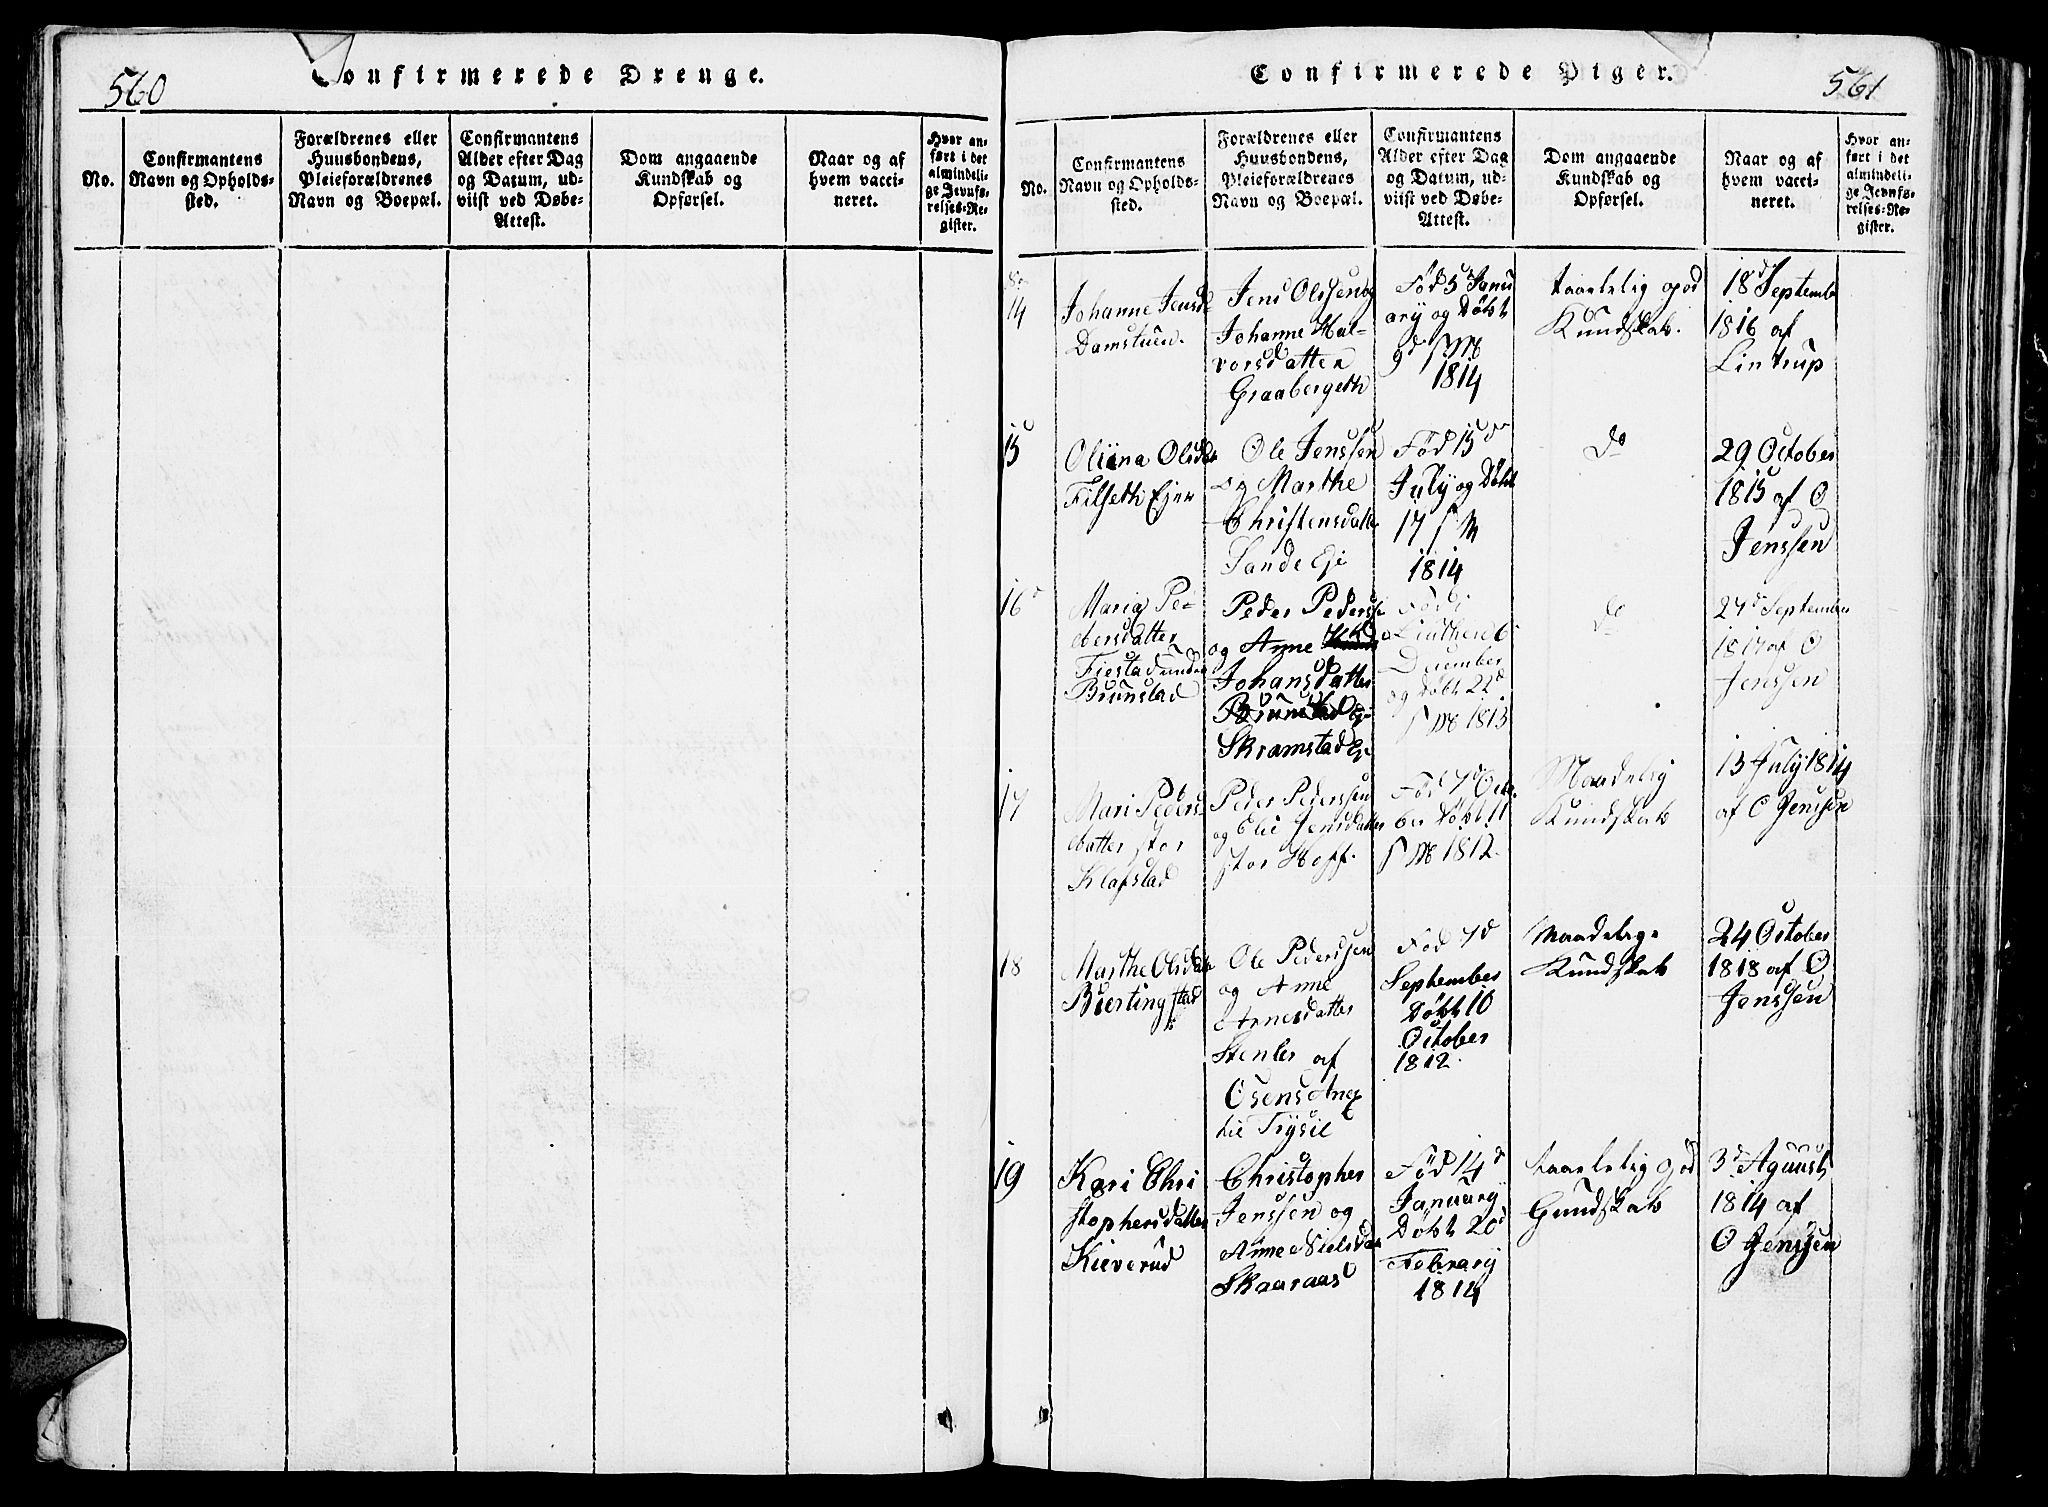 560
Confirmerede Drenge.
No.
Confirmantens
Navn og Opholds-
sted.
Forældrenes eller
Huusbondens,
Pleieforældrenes
Navn og Boepæl.
Confirmantens
Alder efter Dag
og Datum, ud-
viist ved Døbe-
Attest.
Dom angaaende
Kundskab og
Opførsel.
Naar og af
hvem vacci-
neret.
Hvor an-
ført i det
almindeli-
ge Jevnfø-
relses-Re-
gister.
Confirmerede Piger.
561
No.
Confirmantens
Navn og Opholds-
sted.
Forældrenes eller
Huusbondens,
Pleieforældrenes
Navn og Boepæl.
Confirmantens
Alder efter Dag
og Datum, ud-
viist ved Døbe-
Attest.
Dom angaaende
Kundskab og
Opførsel.
Naar og af
hvem vacci-
neret.
Hvor an-
ført i det
almindeli-
ge Jevnfø-
relses-Re-
gister.
No
14
Johanne Jensd
Damstuen.
Jens Olssen og
Johanne Hal-
vorsdatter
Graabergeth
Fød 5 Janu
ary og Døbt
9d s M
1814
taalelig god
Kundskab.
18d Septembr
1816 af
Lintrup
15
Oliina Olsdat
Filseth Ejer
Ole Jenssen
og Marthe
Christensdatter
Sande Eje
Fød 15de
July og Døbt
17 s M
1814
do
29 October
1815 af O
Jenssen
16
Maria Pe-
dersdatter
Fiestad under
Brunstad
Peder Pederss
og Anne
Johansdatter
Brunstad Ej
Skramstad Ej
Fød i
6
December
og Døbt 22d
s M 1813
do
27d September
1817 af O
Jenssen
17
Mari Peders-
datter stor
Klafstad
Peder Pederssen
og Elie Jensdatter
stor Hoff.
Fød 7d Octo
ber Døbt 11
s M 1812.
Maadelig
Kundskab
13 July 1814
af O Jenssen
18
Marthe Olsdat
Biertingstad
Ole Pederssen
og Anne
Arnesdatter
Stenler af
Osens Anex
til Trysil
Fød 7d
September
Døbt 10
October
1812.
Maadelige
Kundskab
24 October
1818 af O
Jenssen
19
Kari Chri
stophersdatter
Kieverud
Christopher
Jenssen og
Anne Nielsdat
Skaaraas
Fød 14d
January
Døbt 20d
Febrary
1814
taalelig god
Gundskab
3d Aguust
1814 af
O Jenssen